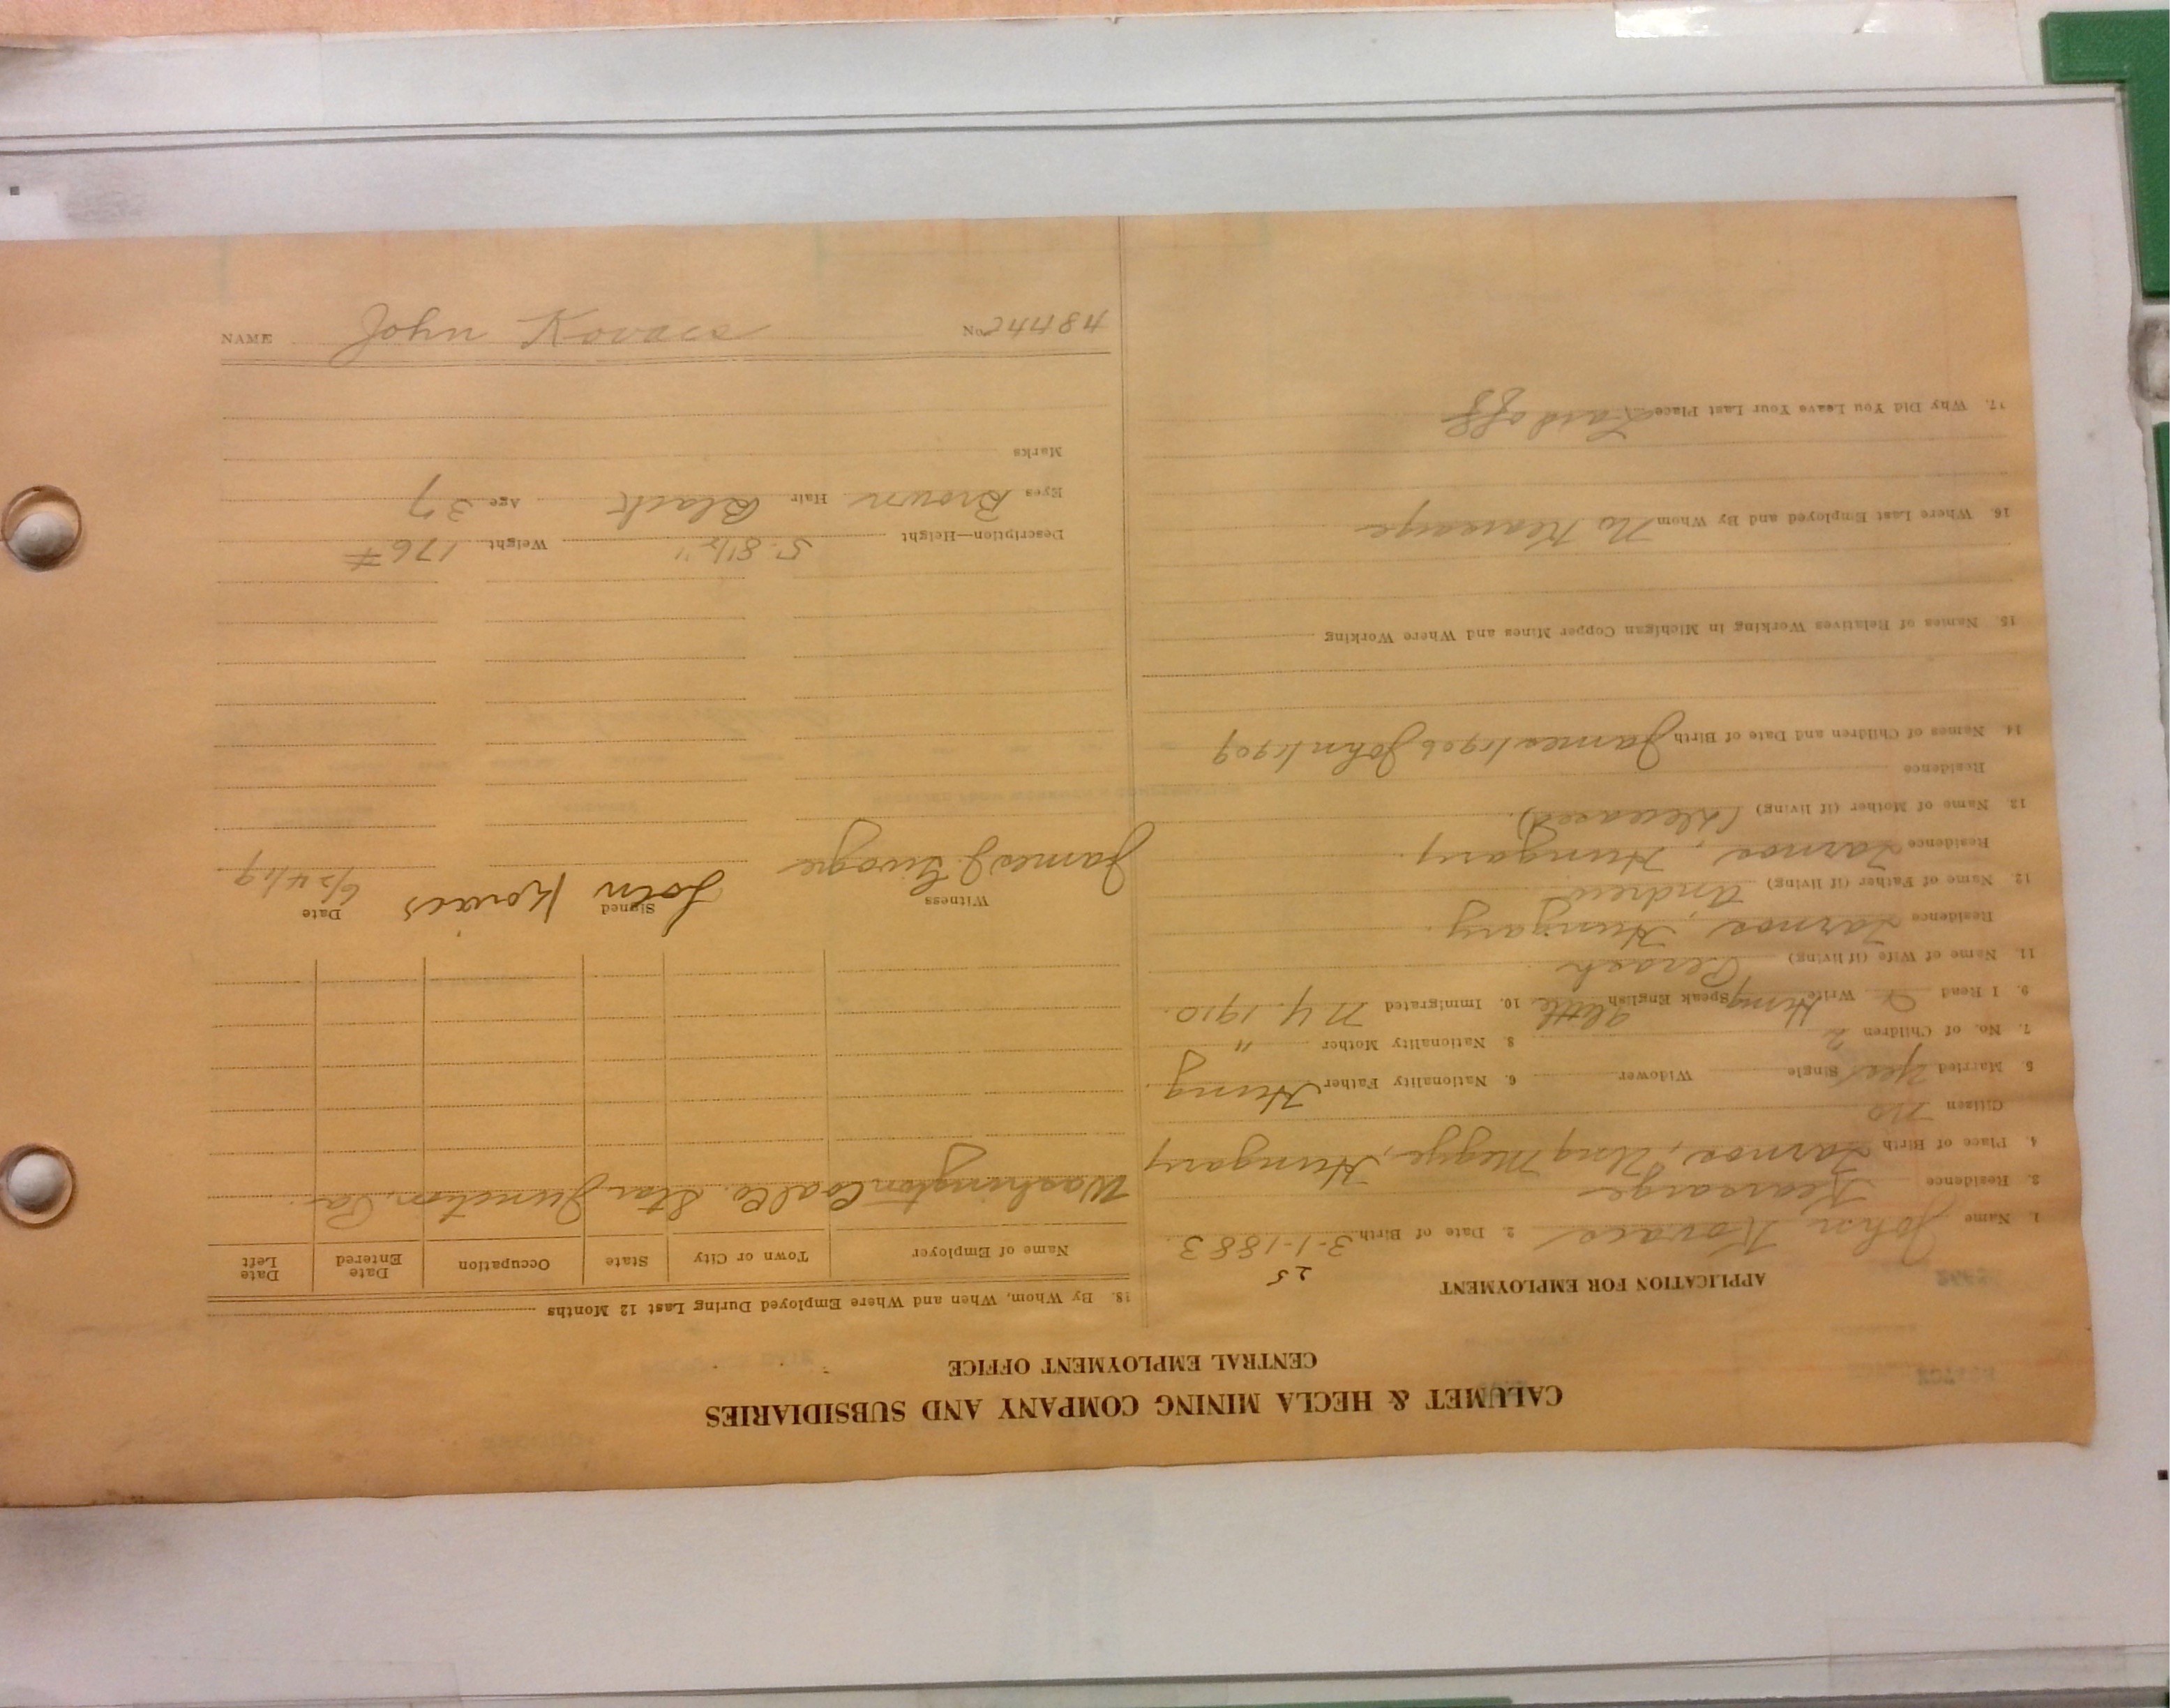 CALUMET & HECLA MINING COMPANY AND SUBSIDIARIES
CENTRAL EMPLOYMENT OFFICE
APPLICATION FOR EMPLOYMENT
25
1. Name John Kovacs 2. Date of Birth 3-1-1883
3. Residence Kearsarge
4. Place of Birth Tarnoc, Ung Megye, Hungary
Citizen no
5. Married yes Single Widower 6. Nationality Father Hung
7. No. of Children 2 8. Nationality Mother "
9. I Read & Write Hung Speak English little 10. Immigrated N.Y. 1910.
11. Name of Wife (if living)
Residence Tarnoc, Hungary.
12. Name of Father (if living) Andrew
Residence Tarnoc, Hungary.
13. Name of Mother (if living) (Deceased).
Residence
14. Names of Children and Date of Birth James 1906 John 1909
15. Names of Relatives Working in Michigan Copper Mines and Where Working
16. Where Last Employed and By Whom No Kearsarge
17. Why Did You Leave Your Last Place Laid off
18. By Whom, When and Where Employed During Last 12 Months
Name of Employer Town or City State Occupation Date Entered Date Left
Washington Coal Co. Star Junction, Pa.
Witness Signed Date
James J. John Kovács 6/24/19
Description—Height 5' 8 1/2" Weight 176 #
Eyes Brown Hair Black Age 37
Marks
NAME John Kovacs No.